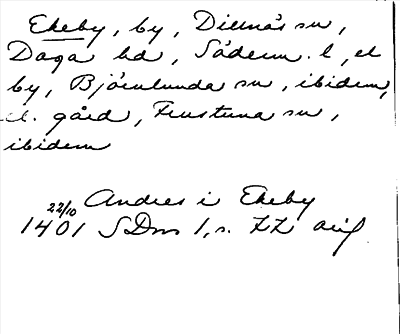 Ekeby, by, Dillnäs sn,
Daga hd, Söderm. l, el
by, Björnlunda sn, ibidem,
el. gård, Frustuna sn,
ibidem
Andres i Ekeby
22/10
1401 SDns 1, s. 22 avs